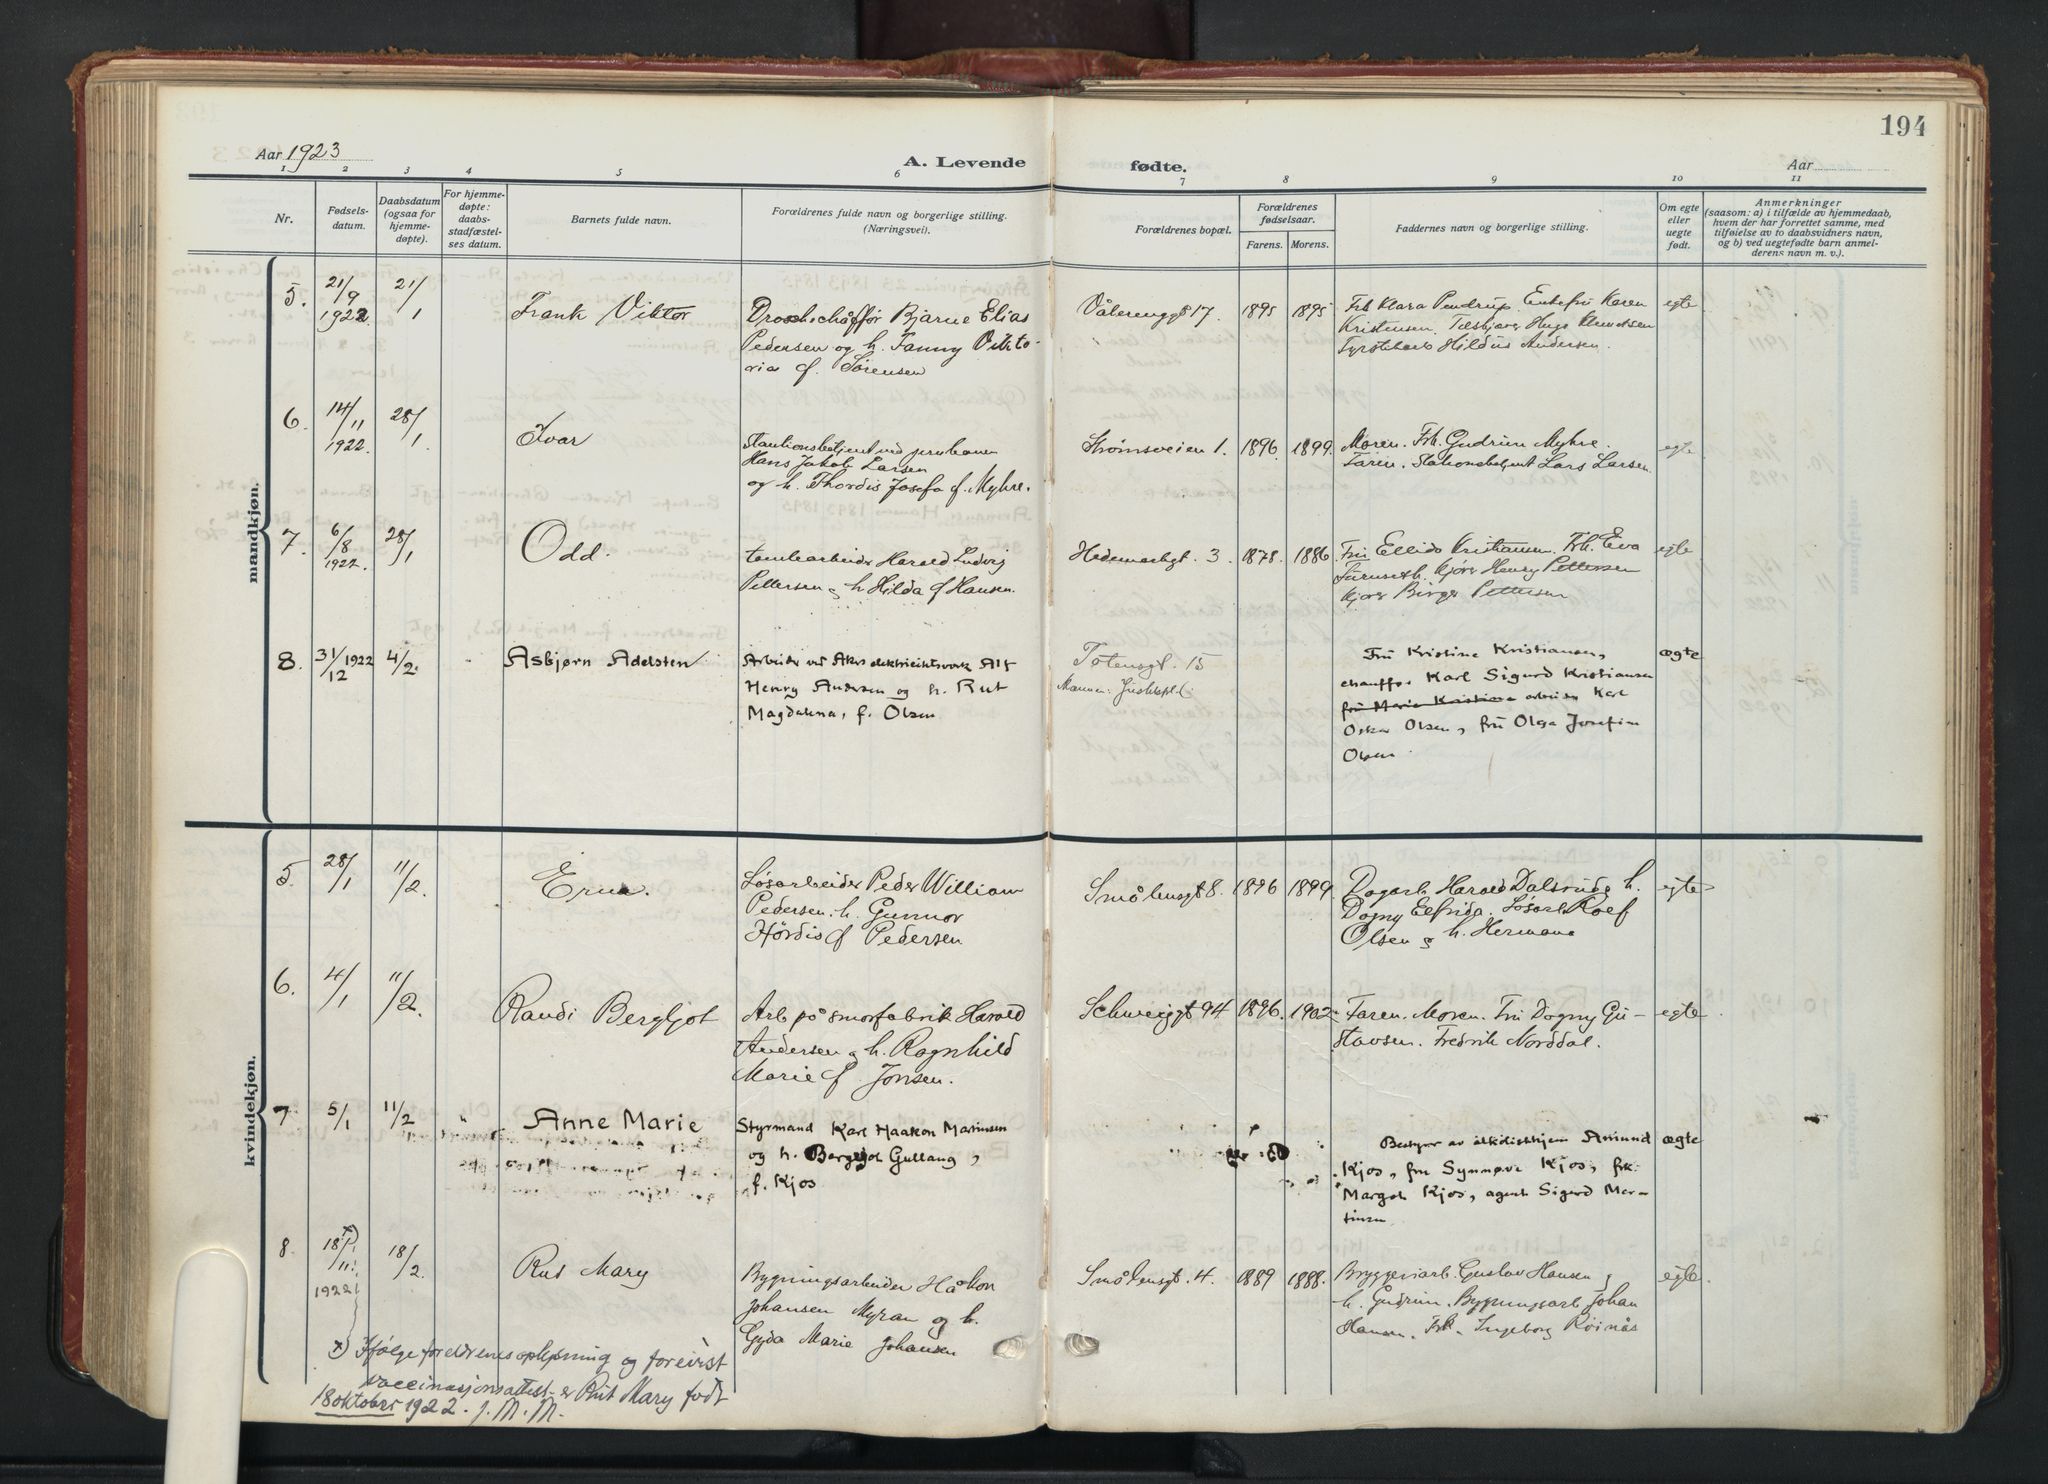 194
Aar 1923
A. Levende
fødte.
Aar
1 2 3 4 5 6 7 8 9 10 11
Nr.
Fødsels-
datum.
Daabsdatum
(ogsaa for
hjemme-
døpte).
For hjemme-
døpte:
daabs-
stadfæstel-
ses datum.
Barnets fulde navn.
Forældrenes fulde navn og borgerlige stilling.
(Næringsvei).
Forældrenes bopæl.
Forældrenes
fødselsaar.
Farens. Morens.
Faddernes navn og borgerlige stilling.
Om egte
eller
uegte
født.
Anmerkninger
(saasom: a) i tilfælde av hjemmedaab,
hvem der har forrettet samme, med
tilføielse av to daabsvidners navn,
og b) ved uegtefødte barn anmel-
derens navn m. v.).
mandkjøn.
5. 21/9 1922. 21/1 Frank Viktor
Droschechåffør Bjarne Elias
Pedersen og h. Fanny Vikto-
ria f. Sørensen
Vålerenggt 17. 1895 1895
Frk Klara Pendrup. Enkefru Karen
Kristensen. Hugo
Hildus Andersen.
egte
6. 14/11 1922. 28/1 Ivar
Stationsbetjent ved jernbanen
Hans Jakob Larsen
og h. Thordis Josefa f. Myhre.
Strømsveien 1. 1896. 1899.
Moren. Frk. Gudrun Myhre.
Faren. Stationsbetjent Lars Larsen.
egte
7. 6/8 1922. 28/1 Odd.
tomtearbeider Harald Ludvig
Pettersen og h Hilda f Hansen.
Hedemarksgt. 3. 1878. 1886
Fru Ellida Kristiansen. Frk. Eva
Furuseth. kjører Henry Pettersen
kjører Birger Pettersen
egte
8. 31/12 1922 4/2. Asbjørn Adelsten.
Arbeider ved Akers elektricitetsverk Alf
Henry Andersen og h. Rut
Magdalena, f. Olsen
Totensgt. 15
Fru Kristine Kristiansen,
chauffør Karl Sigurd Kristiansen
fru Marie Kristine arbeider Karl
Oskar Olsen, fru Olga Josefine
Olsen.
ægte
kvindekjøn.
5. 28/1 11/2. Erna.
Løsarbeider Peder William
Pedersen. h. Gunnor
Hørdis f Pedersen.
Smålensgt 8. 1896 1899.
Dagarb Harald Dalsrud og h.
Dagny Elfrida. Løsarb Rolf
Olsen og h. Hermana
egte
6. 4/1 11/2. Randi Bergljot
Arb på smørfabrik Harald
Andersen og h. Ragnhild
Marie f Jonsen.
Schweigt 94 1896. 1902
Faren. Moren. Fru Dagny Gu-
stavsen. Fredrik Norddal.
egte
7 5/1 11/2 " Anne Marie
Styrmand Karl Haakon Martinsen
og h. Bergljot Gullaug,
f. Kjos
Bestyrer av alkoholisthjem Amund
Kjos, fru Synnøve Kjos, frk.
Margot Kjos, agent Sigurd Mar-
tinsen.
ægte
8. 18/11. x) 1922 18/2. Rut Mary
Bygningsarbeider Håkon
Johansen Myran og h.
Gyda Marie Johansen
Smålensgt. 4. 1889 1888.
Bryggeriarb. Gustav Hansen og
h. Gudrun. Bygningsarb Johan
Hansen. Frk. Ingeborg Røinås
egte.
x) Ifølge foreldrenes oplysning og forevist
vaccinasjonsattest er Rut Mary født
18 oktober 1922. J. M. M.